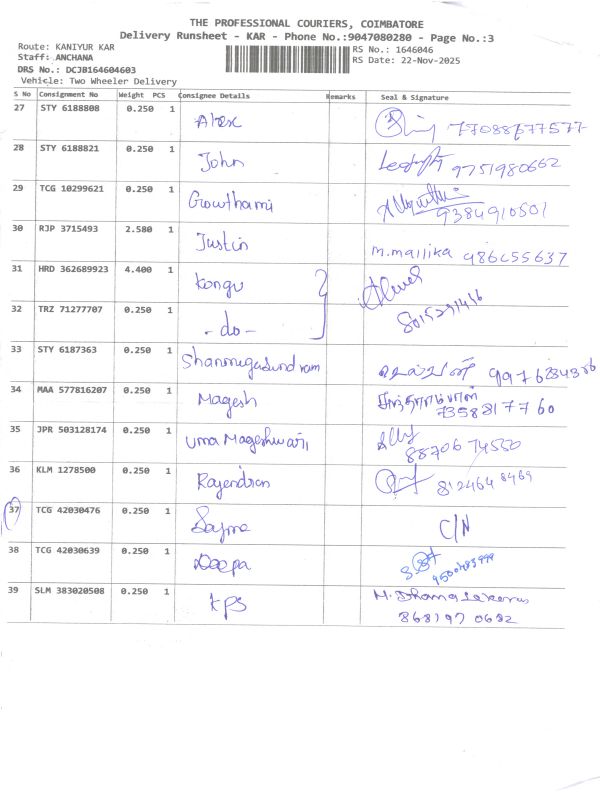 THE PROFESSIONAL COURIERS, COIMBATORE
Delivery Runsheet - KAR - Phone No.:9047080280 - Page No.:3
Route: KANIYUR KAR RS No.: 1646046
Staff: ANCHANA RS Date: 22-Nov-2025
DRS No.: DCJB164604603
Vehicle: Two Wheeler Delivery
S No Consignment No Weight PCS Consignee Details Remarks Seal & Signature
27 STY 6188808 0.250 1 Alex
28 STY 6188821 0.250 1 John 9751980662
29 TCG 10299621 0.250 1 Gowthami 9384910501
30 RJP 3715493 2.580 1 Justin m.mallika
31 HRD 362689923 4.400 1 Kongu
32 TRZ 71277707 0.250 1 - do -
33 STY 6187363 0.250 1 Shanmugasundram
34 MAA 577816207 0.250 1 Magesh 7358817760
35 JPR 503128174 0.250 1 Uma Mageshwari 8870674550
36 KLM 1278500 0.250 1 Rajendran 8124648469
37 TCG 42030476 0.250 1 C/N
38 TCG 42030639 0.250 1 Deepa
39 SLM 383020508 0.250 1 KPS